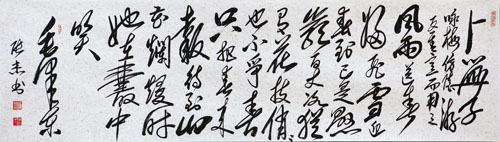 卜算子
咏梅
反其意而用之
風雨送春
归飞雪迎
春到已是悬
崖百丈冰犹
有花枝俏俏
也不争春
只把春来
报待到山
花烂漫时
她在叢中
笑
毛泽东